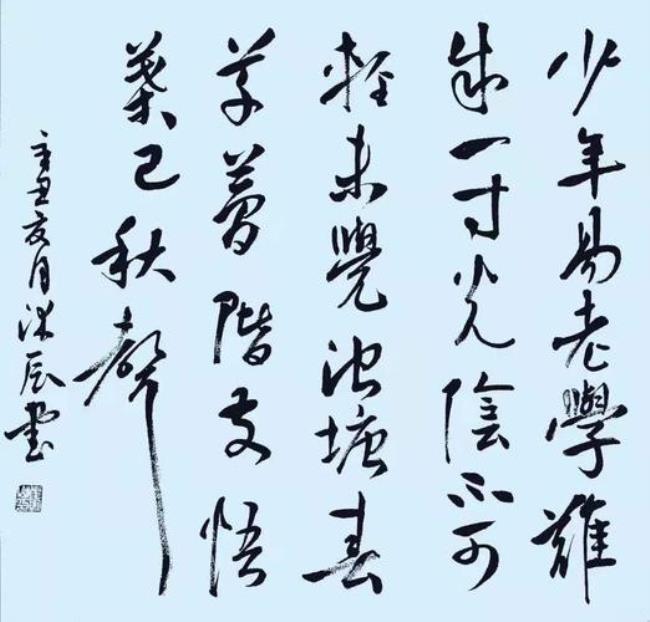 少年易老學難
成一寸光陰不可
輕未覺池塘春
草夢階前梧
葉已秋聲
辛丑亥月 辰書